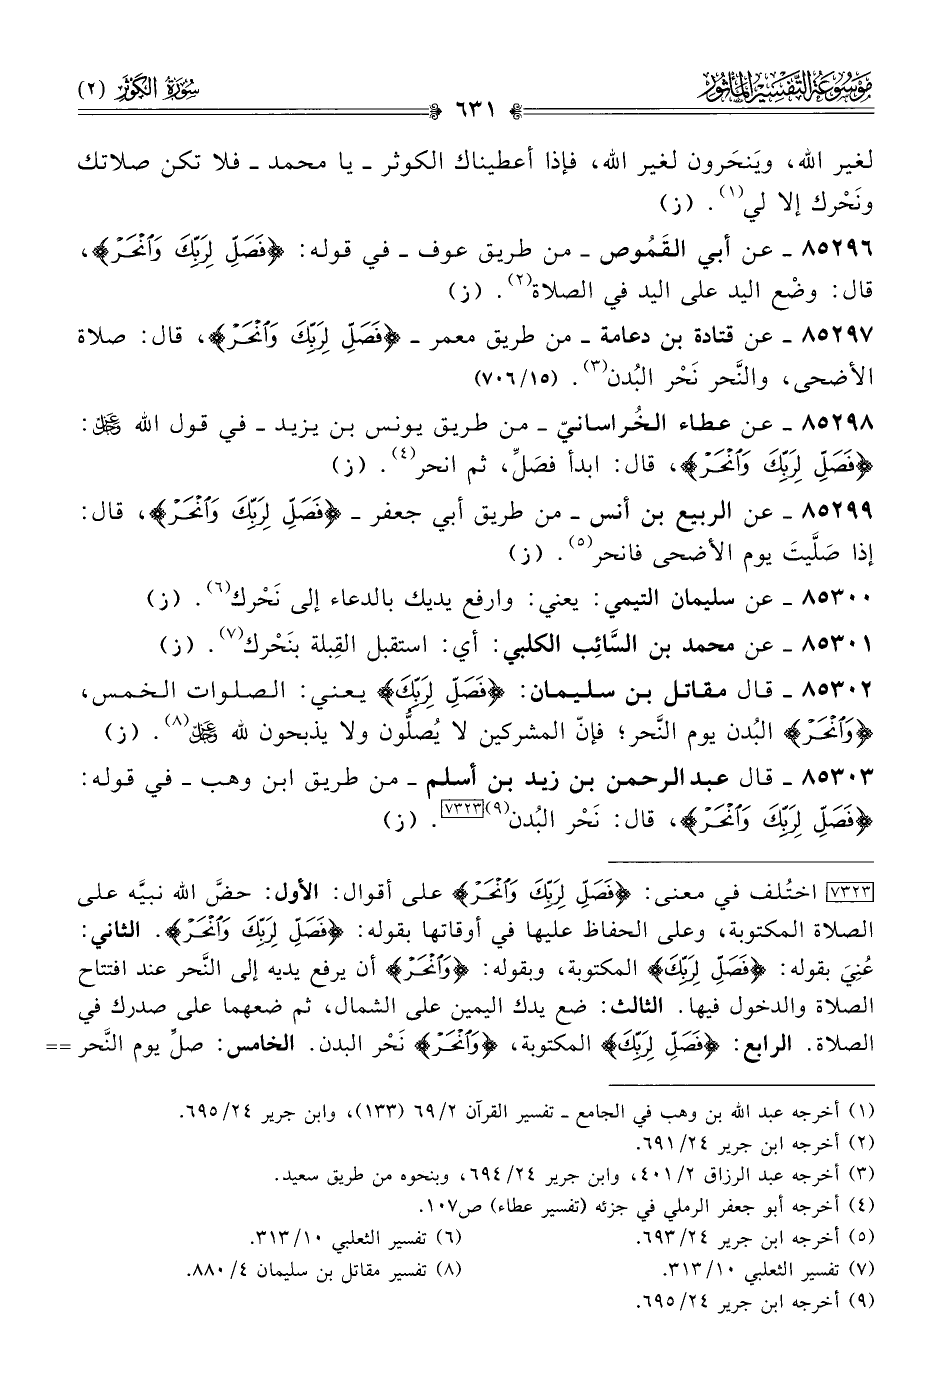 مَوْسُوعَةُ التَّفْسِيرِ المَأْثُورِ
سُورَةُ الكَوْثَرِ (٢)
٦٣١
لغير الله، ويَنحَرون لغير الله، فإذا أعطيناك الكوثر ـ يا محمد ـ فلا تكن صلاتك
ونَحْرك إلا لي(١). (ز)
٨٥٢٩٦ ـ عن أبي القَمُوص ـ من طريق عوف ـ في قوله: ﴿فَصَلِّ لِرَبِّكَ وَٱنْحَرْ﴾،
قال: وضْع اليد على اليد في الصلاة(٢). (ز)
٨٥٢٩٧ ـ عن قتادة بن دعامة ـ من طريق معمر ـ ﴿فَصَلِّ لِرَبِّكَ وَٱنْحَرْ﴾، قال: صلاة
الأضحى، والنَّحر نَحْر البُدن(٣). (٧٠٦/١٥)
٨٥٢٩٨ ـ عن عطاء الخُراسانيّ ـ من طريق يونس بن يزيد ـ في قول الله ﷿:
﴿فَصَلِّ لِرَبِّكَ وَٱنْحَرْ﴾، قال: ابدأ فصَلِّ، ثم انحر(٤). (ز)
٨٥٢٩٩ ـ عن الربيع بن أنس ـ من طريق أبي جعفر ـ ﴿فَصَلِّ لِرَبِّكَ وَٱنْحَرْ﴾، قال:
إذا صَلَّيتَ يوم الأضحى فانحر(٥). (ز)
٨٥٣٠٠ ـ عن سليمان التيمي: يعني: وارفع يديك بالدعاء إلى نَحْرك(٦). (ز)
٨٥٣٠١ ـ عن محمد بن السَّائِب الكلبي: أي: استقبل القِبلة بنَحْرك(٧). (ز)
٨٥٣٠٢ ـ قال مقاتل بن سليمان: ﴿فَصَلِّ لِرَبِّكَ﴾ يعني: الصلوات الخمس،
﴿وَٱنْحَرْ﴾ البُدن يوم النَّحر؛ فإنّ المشركين لا يُصلُّون ولا يذبحون لله ﷿(٨). (ز)
٨٥٣٠٣ ـ قال عبدالرحمن بن زيد بن أسلم ـ من طريق ابن وهب ـ في قوله:
﴿فَصَلِّ لِرَبِّكَ وَٱنْحَرْ﴾، قال: نَحْر البُدن(٩)[٧٣٢٣]. (ز)
[٧٣٢٣] اختُلف في معنى: ﴿فَصَلِّ لِرَبِّكَ وَٱنْحَرْ﴾ على أقوال: الأول: حضَّ الله نبيَّه على
الصلاة المكتوبة، وعلى الحفاظ عليها في أوقاتها بقوله: ﴿فَصَلِّ لِرَبِّكَ وَٱنْحَرْ﴾. الثاني:
عُنِيَ بقوله: ﴿فَصَلِّ لِرَبِّكَ﴾ المكتوبة، وبقوله: ﴿وَٱنْحَرْ﴾ أن يرفع يديه إلى النَّحر عند افتتاح
الصلاة والدخول فيها. الثالث: ضع يدك اليمين على الشمال، ثم ضعهما على صدرك في
الصلاة. الرابع: ﴿فَصَلِّ لِرَبِّكَ﴾ المكتوبة، ﴿وَٱنْحَرْ﴾ نَحْر البدن. الخامس: صلِّ يوم النَّحر ==
(١) أخرجه عبد الله بن وهب في الجامع ـ تفسير القرآن ٦٩/٢ (١٣٣)، وابن جرير ٦٩٥/٢٤.
(٢) أخرجه ابن جرير ٦٩١/٢٤.
(٣) أخرجه عبد الرزاق ٤٠١/٢، وابن جرير ٦٩٤/٢٤، وبنحوه من طريق سعيد.
(٤) أخرجه أبو جعفر الرملي في جزئه (تفسير عطاء) ص١٠٧.
(٥) أخرجه ابن جرير ٦٩٣/٢٤. (٦) تفسير الثعلبي ٣١٣/١٠.
(٧) تفسير الثعلبي ٣١٣/١٠. (٨) تفسير مقاتل بن سليمان ٨٨٠/٤.
(٩) أخرجه ابن جرير ٦٩٥/٢٤.